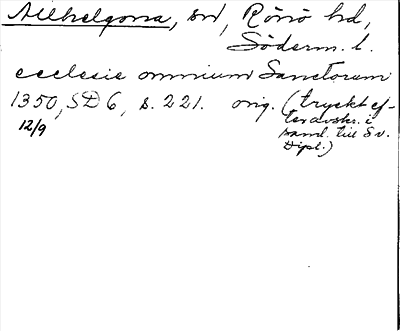 Allhelgona, sn, Rönö hd,
Söderm. l.
ecclesie omnium Sanctorum
1350, SD 6, s. 221. orig. (tryckt ef-
12/9 ter avskr. i
saml. till Sv.
Dipl.)